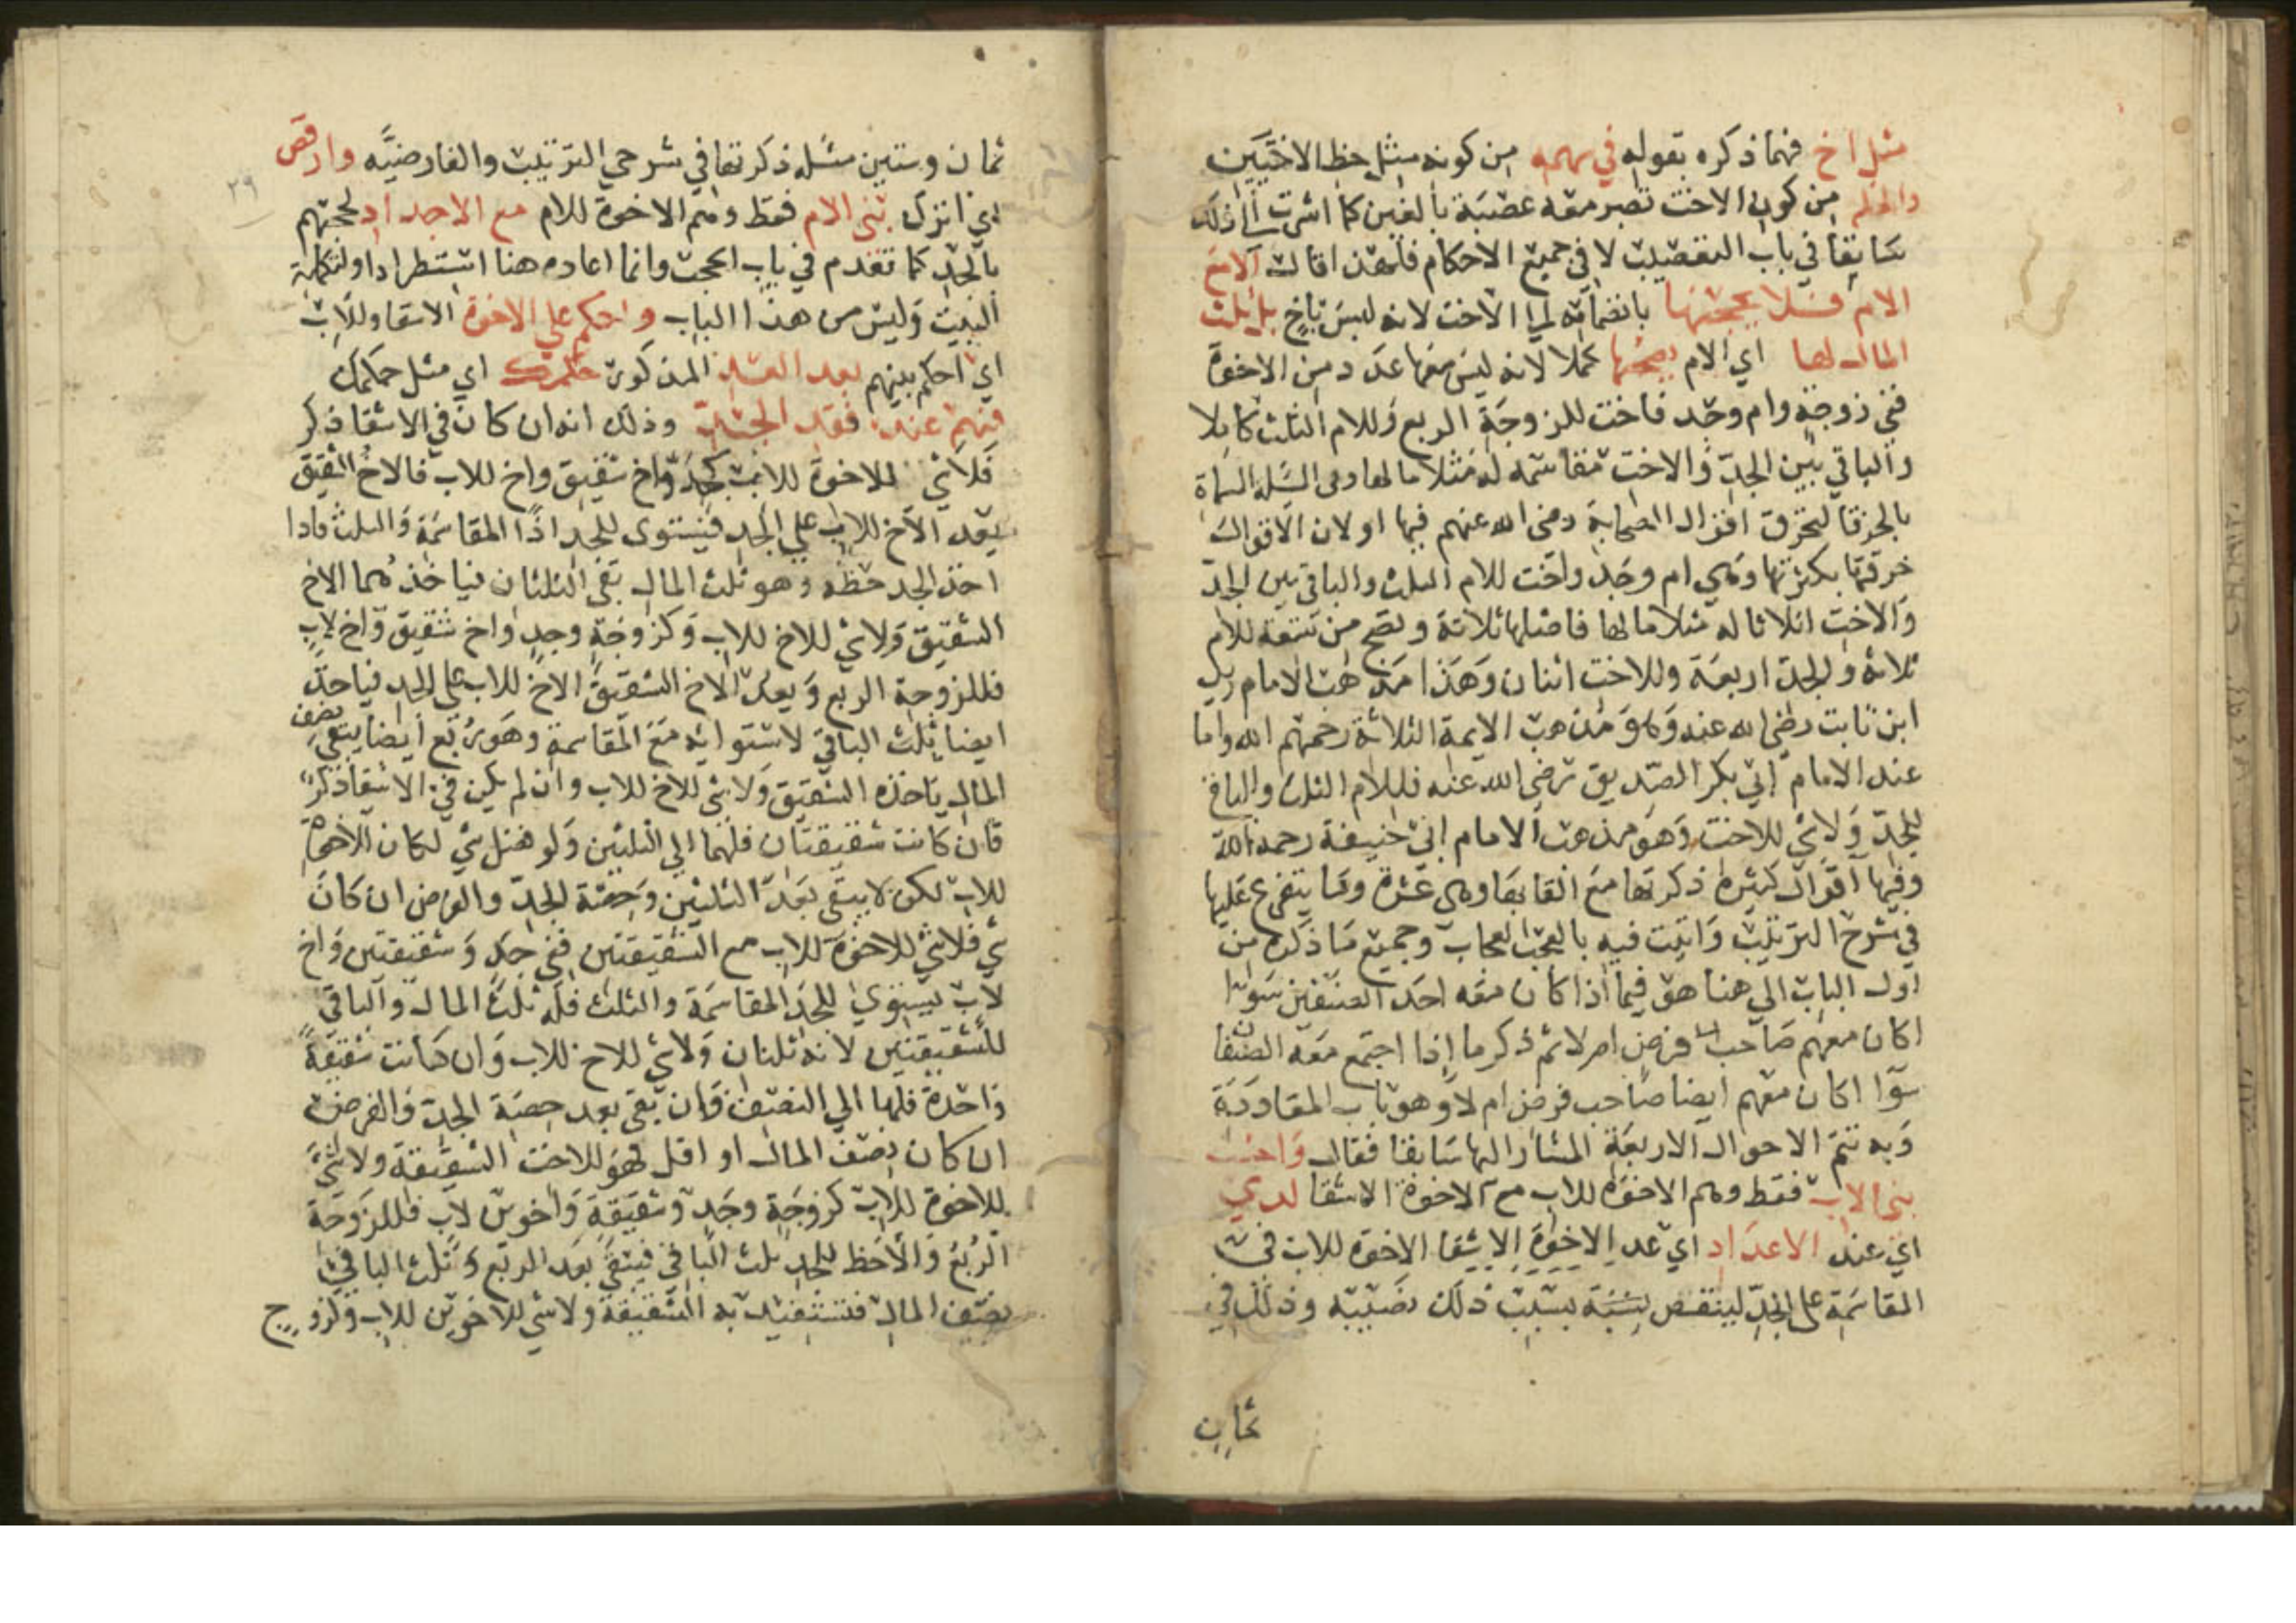 مثل اخ فيما ذكره بقوله في سهمه من كونه مثل حظ الاختين
والحكم من كون الاخت تصير معه عصبة بالغير كما اشرت الى ذلك
سابقا في باب التعصيب لا في جميع الاحكام فلهذا قال الا مع
الام فلا يحجبها بانضمامه الى الاخت لانه ليس باخ بل ثلث
المال لها اي الام يصحبها كملا لانه ليس معها عدد من الاخوة
ففي زوجة وام وجد فاخت للزوجة الربع وللام الثلث كاملا
والباقي بين الجد والاخت مقاسمه له مثلا ما لها وفي المسئله المسماة
بالخرقا لتخرق اقوال الصحابة رضي الله عنهم فيها او لان الاقوال
خرقتها بكثرتها وهي ام وجد واخت للام الثلث والباقي بين الجد
والاخت اثلاثا له مثلا ما لها فاصلها ثلاثة وتصح من تسعة للام
ثلاثة وللجد اربعة وللاخت اثنان وهذا مذهب الامام زيد
ابن ثابت رضي الله عنه وهو مذهب الايمة الثلاثة رحمهم الله واما
عند الامام ابي بكر الصديق رضي الله عنه فللام الثلث والباقي
للجد ولا شي للاخت وهو مذهب الامام ابي حنيفة رحمه الله
وفيها اقوال كثيرة ذكرتها مع القابها وهي عشرة وما يتفرع عليها
في شرح الترتيب واتيت فيه بالعجب العجاب وجميع ما ذكره من
اول الباب الي هنا هو فيما اذا كان معه احد الصنفين سوا
اكان معهم صاحب فرض ام لا ثم ذكر ما اذا اجتمع معه الصنفان
سوا اكان معهم ايضا صاحب فرض ام لا وهو باب المعاددة
وبه تتم الاحوال الاربعة المشار اليها سابقا فقال واحسب
بني الاب فقط وهم الاخوة للاب مع الاخوة الاشقا لدي
اي عند الاعداد اي عد الاخوة الاشقا الاخوة للاب في
المقاسمة على الجد لينقص بسبب ذلك نصيبه وذلك في
ثمان
٢٩
ثمان وستين مسئله ذكرتها في شرحي الترتيب والفارضيه وارفض
اي اترك بني الام فقط وهم الاخوة للام مع الاجداد لحجبهم
بالجد كما تقدم في باب الحجب وانما اعاده هنا استطرادا او لتكملة
البيت وليس من هذا الباب واحكم علي الاخوة الاشقا وللاب
اي احكم بينهم بعد العد المذكور حكمك اي مثل حكمك
فيهم عند فقد الجد وذلك انه ان كان في الاشقا ذكر
فلا شي للاخوة للاب كجد واخ شقيق واخ للاب فالاخ الشقيق
يعد الاخ للاب علي الجد فيستوى للجد اذا المقاسمة والثلث فاذا
اخذ الجد حظه وهو ثلث المال بقي الثلثان فياخذهما الاخ
الشقيق ولا شي للاخ للاب وكزوجة وجد واخ شقيق واخ لاب
فللزوجة الربع ويعد الاخ الشقيق الاخ للاب على الجد فياخذ
ايضا ثلث الباقي لاستوائه مع المقاسمة وهو ربع ايضا يبقي نصف
المال ياخذه الشقيق ولا شي للاخ للاب وان لم يكن في الاشقا ذكر
فان كانت شقيقتان فلهما الي الثلثين ولو فضل شي لكان للاخوة
للاب لكن لا يبقي بعد الثلثين وحصة الجد والفرض ان كان
شي فلا شي للاخوة للاب مع الشقيقتين ففي جد وشقيقتين واخ
لاب يستوي للجد المقاسمة والثلث فله ثلث المال والباقي
للشقيقتين لانه ثلثان ولا شي للاخ للاب وان كانت شقيقة
واحدة فلها الي النصف وان بقي بعد حصة الجد والفرض
ان كان نصف المال او اقل فهو للاخت الشقيقة ولا شي
للاخوة للاب كزوجة وجد وشقيقة واخوين لاب فللزوجة
الربع والاحظ للجد ثلث الباقي فيبقي بعد الربع وثلث الباقي
نصف المال فتستفيد به الشقيقة ولا شي للاخوين للاب وكزوج